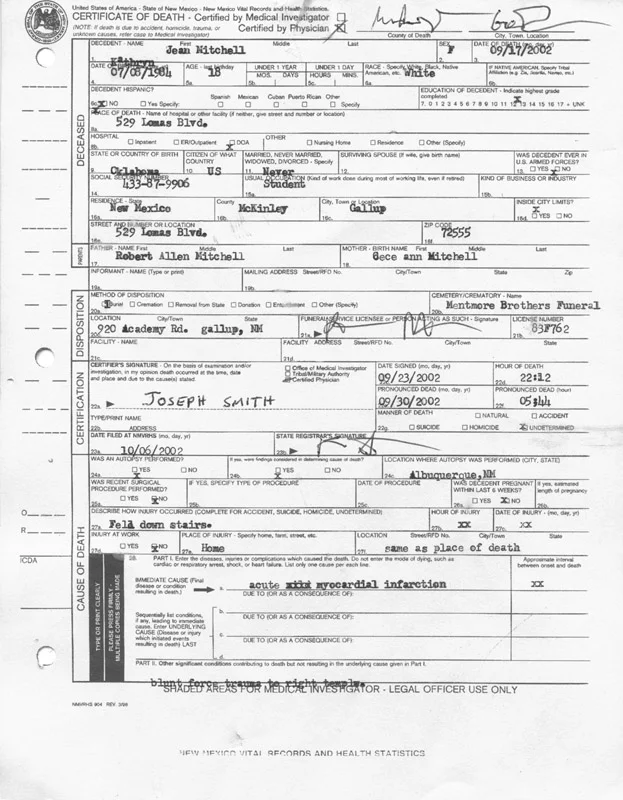 United States of America - State of New Mexico - New Mexico Vital Records and Health Statistics
CERTIFICATE OF DEATH - Certified by Medical Investigator
(NOTE: If death is due to accident, homicide, trauma, or Certified by Physician X
unknown causes, refer case to Medical Investigator) County of Death City, Town, Location
DECEDENT - NAME First Middle Last SEX DATE OF DEATH (mo, day, yr)
1. Jean Mitchell 2. F 3. 09/17/2002
Kathryn
DATE OF AGE - last birthday UNDER 1 YEAR UNDER 1 DAY RACE - Specify White, Black, Native American, etc. IF NATIVE AMERICAN, Specify Tribal Affiliation (e.g. Zia, Jicarilla, Navajo, etc.)
07/08/1984 18 MOS. DAYS HOURS MINS. White
DECEDENT HISPANIC? Spanish Mexican Cuban Puerto Rican Other EDUCATION OF DECEDENT - Indicate highest grade completed
X NO Yes Specify: Specify 7, 0 1 2 3 4 5 6 7 8 9 10 11 12 13 14 15 16 17 + UNK
PLACE OF DEATH - Name of hospital or other facility (if neither, give street and number or location)
529 Lomas Blvd.
HOSPITAL OTHER
Inpatient ER/Outpatient DOA Nursing Home Residence Other (Specify)
STATE OR COUNTRY OF BIRTH CITIZEN OF WHAT COUNTRY MARRIED, NEVER MARRIED, WIDOWED, DIVORCED - Specify SURVIVING SPOUSE (If wife, give birth name) WAS DECEDENT EVER IN U.S. ARMED FORCES?
9. Oklahoma 10. US 11. Never 12. 13. YES NO
SOCIAL SECURITY NUMBER USUAL OCCUPATION (Kind of work done during most of working life, even if retired) KIND OF BUSINESS OR INDUSTRY
14. 433-87-9906 15a. Student 15b.
RESIDENCE - State County City, Town or Location INSIDE CITY LIMITS?
16a. New Mexico 16b. McKinley 16c. Gallup 16d. YES NO
STREET AND NUMBER OR LOCATION ZIP CODE
16e. 529 Lomas Blvd. 16f. 72555
FATHER - NAME First Middle Last MOTHER - BIRTH NAME First Middle Last
17. Robert Allen Mitchell 18. Gece ann Mitchell
INFORMANT - NAME (Type or print) MAILING ADDRESS Street/RFD No. City/Town State Zip
19a. 19b.
METHOD OF DISPOSITION CEMETERY/CREMATORY - Name
Burial Cremation Removal from State Donation Entombment Other (Specify) Mentmore Brothers Funeral
LOCATION City/Town State FUNERAL SERVICE LICENSEE or PERSON ACTING AS SUCH - Signature LICENSE NUMBER
920 Academy Rd. gallup, NM 21a. 21b.
FACILITY - NAME FACILITY ADDRESS Street/RFD No. City/Town State
21c. 21d.
CERTIFIER'S SIGNATURE - On the basis of examination and/or investigation, in my opinion death occurred at the time, date and place and due to the cause(s) stated Office of Medical Investigator Tribal/Military Authority Certified Physician DATE SIGNED (mo, day, yr) HOUR OF DEATH
09/23/2002 22:12
PRONOUNCED DEAD (mo, day, yr) PRONOUNCED DEAD (hour)
22a. JOSEPH SMITH 09/30/2002 05:44
TYPE/PRINT NAME MANNER OF DEATH NATURAL ACCIDENT
22b. ADDRESS 22g. SUICIDE HOMICIDE X UNDETERMINED
DATE FILED AT NMVRHS (mo, day, yr) STATE REGISTRAR'S SIGNATURE
23a. 10/06/2002 23b.
WAS AN AUTOPSY PERFORMED? If yes, were findings considered in determining cause of death? LOCATION WHERE AUTOPSY WAS PERFORMED (CITY, STATE)
24a. YES NO 24b. YES NO 24c. Albuquerque,NM
WAS RECENT SURGICAL PROCEDURE PERFORMED? IF YES, SPECIFY TYPE OF PROCEDURE DATE OF PROCEDURE WAS DECEDENT PREGNANT WITHIN LAST 6 WEEKS? If yes, estimated length of pregnancy
25a. YES NO 25b. 25c. YES X NO
DESCRIBE HOW INJURY OCCURRED (COMPLETE FOR ACCIDENT, SUICIDE, HOMICIDE, UNDETERMINED) HOUR OF INJURY DATE OF INJURY - (mo, day, yr)
27a. Fell down stairs. 27b. xx 27c. xx
INJURY AT WORK PLACE OF INJURY - Specify home, farm, street, etc. LOCATION Street/RFD No. City/Town State
YES NO Home same as place of death
28. PART I. Enter the diseases, injuries or complications which caused the death. Do not enter the mode of dying, such as cardiac or respiratory arrest, shock, or heart failure. List only one cause per each line. Approximate interval between onset and death
IMMEDIATE CAUSE (Final disease or condition resulting in death.) a. acute myocardial infarction xx
DUE TO (OR AS A CONSEQUENCE OF):
Sequentially list conditions, if any, leading to immediate cause. Enter UNDERLYING CAUSE (Disease or injury which initiated events resulting in death) LAST b.
DUE TO (OR AS A CONSEQUENCE OF):
c.
DUE TO (OR AS A CONSEQUENCE OF):
d.
PART II. Other significant conditions contributing to death but not resulting in the underlying cause given in Part I.
blunt force trauma to right temple.
SHADED AREAS FOR MEDICAL INVESTIGATOR - LEGAL OFFICER USE ONLY
NMVRHS 904 REV. 3/98
NEW MEXICO VITAL RECORDS AND HEALTH STATISTICS
DECEASED
PARENTS
DISPOSITION
CERTIFICATION
CAUSE OF DEATH
TYPE OR PRINT CLEARLY
PLEASE PRESS FIRMLY - MULTIPLE COPIES BEING MADE
O
R
ICDA